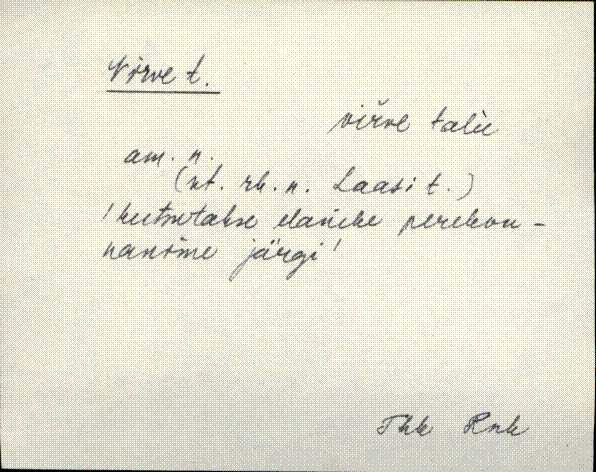 Virve t.
virve talu
am. n.
(vt. rh. n. Laasi t.)
'kutsutakse elanike perekon-
nanime järgi'
Thk Rnk